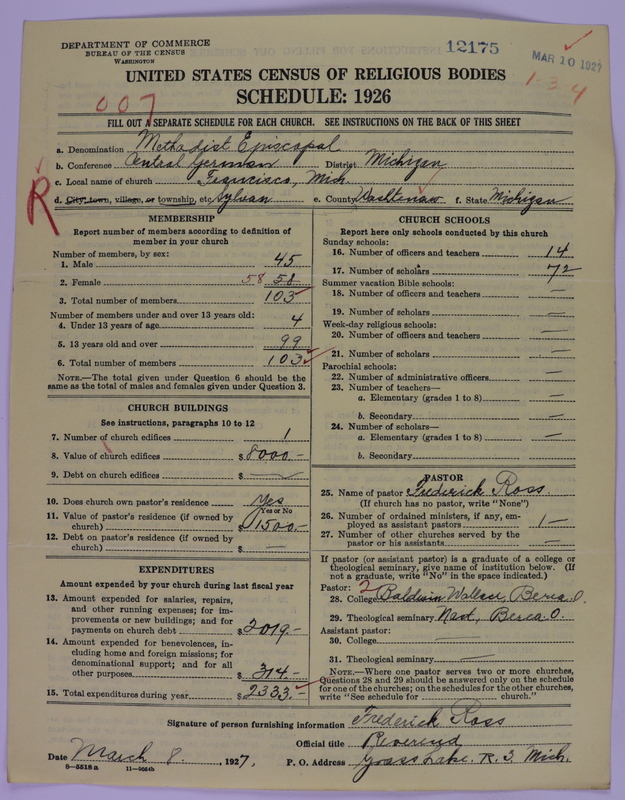 DEPARTMENT OF COMMERCE
BUREAU OF THE CENSUS
WASHINGTON
12175
MAR 10 1927
1-3-4
UNITED STATES CENSUS OF RELIGIOUS BODIES
SCHEDULE: 1926
007
FILL OUT A SEPARATE SCHEDULE FOR EACH CHURCH. SEE INSTRUCTIONS ON THE BACK OF THIS SHEET
a. Denomination Methodist Episcopal
b. Conference Central German District Michigan
c. Local name of church Francisco, Mich.
R
d. City, town, village, or township, etc. Sylvan e. County Washtenaw f. State Michigan
MEMBERSHIP
Report number of members according to definition of
member in your church
Number of members, by sex:
1. Male 45
2. Female 58 58
3. Total number of members 103
Number of members under and over 13 years old:
4. Under 13 years of age 4
5. 13 years old and over 99
6. Total number of members 103
NOTE.—The total given under Question 6 should be the
same as the total of males and females given under Question 3.
CHURCH BUILDINGS
See instructions, paragraphs 10 to 12
7. Number of church edifices 1
8. Value of church edifices $8000.-
9. Debt on church edifices $ —
10. Does church own pastor's residence Yes
Yes or No
11. Value of pastor's residence (if owned by
church) $1500.-
12. Debt on pastor's residence (if owned by
church) $ —
EXPENDITURES
Amount expended by your church during last fiscal year
13. Amount expended for salaries, repairs,
and other running expenses; for im-
provements or new buildings; and for
payments on church debt $2019.-
14. Amount expended for benevolences, in-
cluding home and foreign missions; for
denominational support; and for all
other purposes $314.-
15. Total expenditures during year $2333.-
CHURCH SCHOOLS
Report here only schools conducted by this church
Sunday schools:
16. Number of officers and teachers 14
17. Number of scholars 72
Summer vacation Bible schools:
18. Number of officers and teachers —
19. Number of scholars —
Week-day religious schools:
20. Number of officers and teachers —
21. Number of scholars —
Parochial schools:
22. Number of administrative officers —
23. Number of teachers—
a. Elementary (grades 1 to 8) —
b. Secondary —
24. Number of scholars—
a. Elementary (grades 1 to 8) —
b. Secondary —
PASTOR
25. Name of pastor Frederick Ross
(If church has no pastor, write "None")
26. Number of ordained ministers, if any, em-
ployed as assistant pastors 1 —
27. Number of other churches served by the
pastor or his assistants —
If pastor (or assistant pastor) is a graduate of a college or
theological seminary, give name of institution below. (If
not a graduate, write "No" in the space indicated.)
Pastor: 2
28. College Baldwin Wallace, Berea O.
29. Theological seminary Nast, Berea O.
Assistant pastor:
30. College —
31. Theological seminary —
NOTE.—Where one pastor serves two or more churches,
Questions 28 and 29 should be answered only on the schedule
for one of the churches; on the schedules for the other churches,
write "See schedule for church."
Signature of person furnishing information Frederick Ross
Official title Reverend
Date March 8, 1927, P. O. Address Grass Lake. R. 3, Mich.
8-5518a 11-9054b